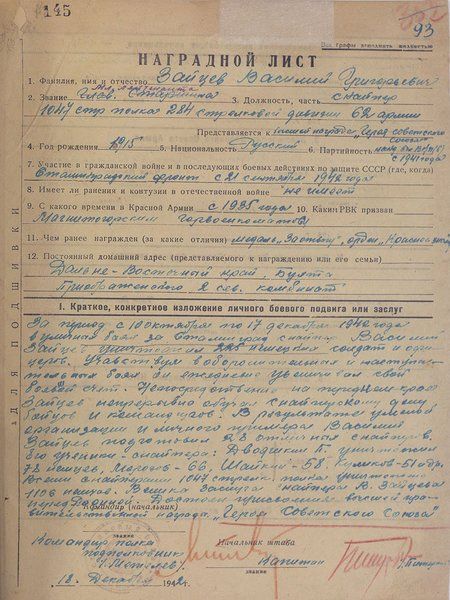 145
93
Все графы заполнять полностью
НАГРАДНОЙ ЛИСТ
1. Фамилия, имя и отчество Зайцев Василий Григорьевич
2. Звание Мл. лейтенанта 3. Должность, часть снайпер
1047 стр полка 284 стрелковой дивизии 62 армии
Представляется к высшей награде, Героя советского
Союза
4. Год рождения 1915 5. Национальность Русский 6. Партийность
с 1941 года
7. Участие в гражданской войне и в последующих боевых действиях по защите СССР (где, когда)
Сталинградский фронт с 21 сентября 1942 года
8. Имеет ли ранения и контузии в отечественной войне не имеет
9. С какого времени в Красной Армии с 1935 года 10. Каким РВК призван
Магнитогорским горвоенкоматом
11. Чем ранее награжден (за какие отличия) медаль „За отвагу", орден
12. Постоянный домашний адрес (представляемого к награждению или его семьи)
Дальне-Восточный край, бухта
Преображенского комбинат
ДЛЯ ПОДШИВКИ
I. Краткое, конкретное изложение личного боевого подвига или заслуг
За период с 10 октября по 17 декабря 1942 года
в уличных боях за Сталинград снайпер Василий
Зайцев уничтожил немецких солдат и офи-
церов. Участвуя в оборонительных и наступа-
тельных боях он ежедневно увеличивал свой
боевой счет. Непосредственно на переднем крае
Зайцев непрерывно обучал снайперскому делу
бойцов и командиров. В результате умелой
организации и личного примера Василий
Зайцев подготовил 28 отличных снайперов.
Его ученики-снайпера: Двояшкин П. уничтожил
78 немцев, 66, 58. Куликов-51
Всеми снайперами 1047 стрелк. полка уничтожено
1106 немцев. Велика заслуга снайпера В. Зайцева
перед Родиной. Достоин присвоения высшей пра-
вительственной награды „Герой Советского Союза"
Командир (начальник)
звание
Командир полка
подполковник
(Метелев)
Начальник штаба
Капитан
звание
18 Декабря 1942